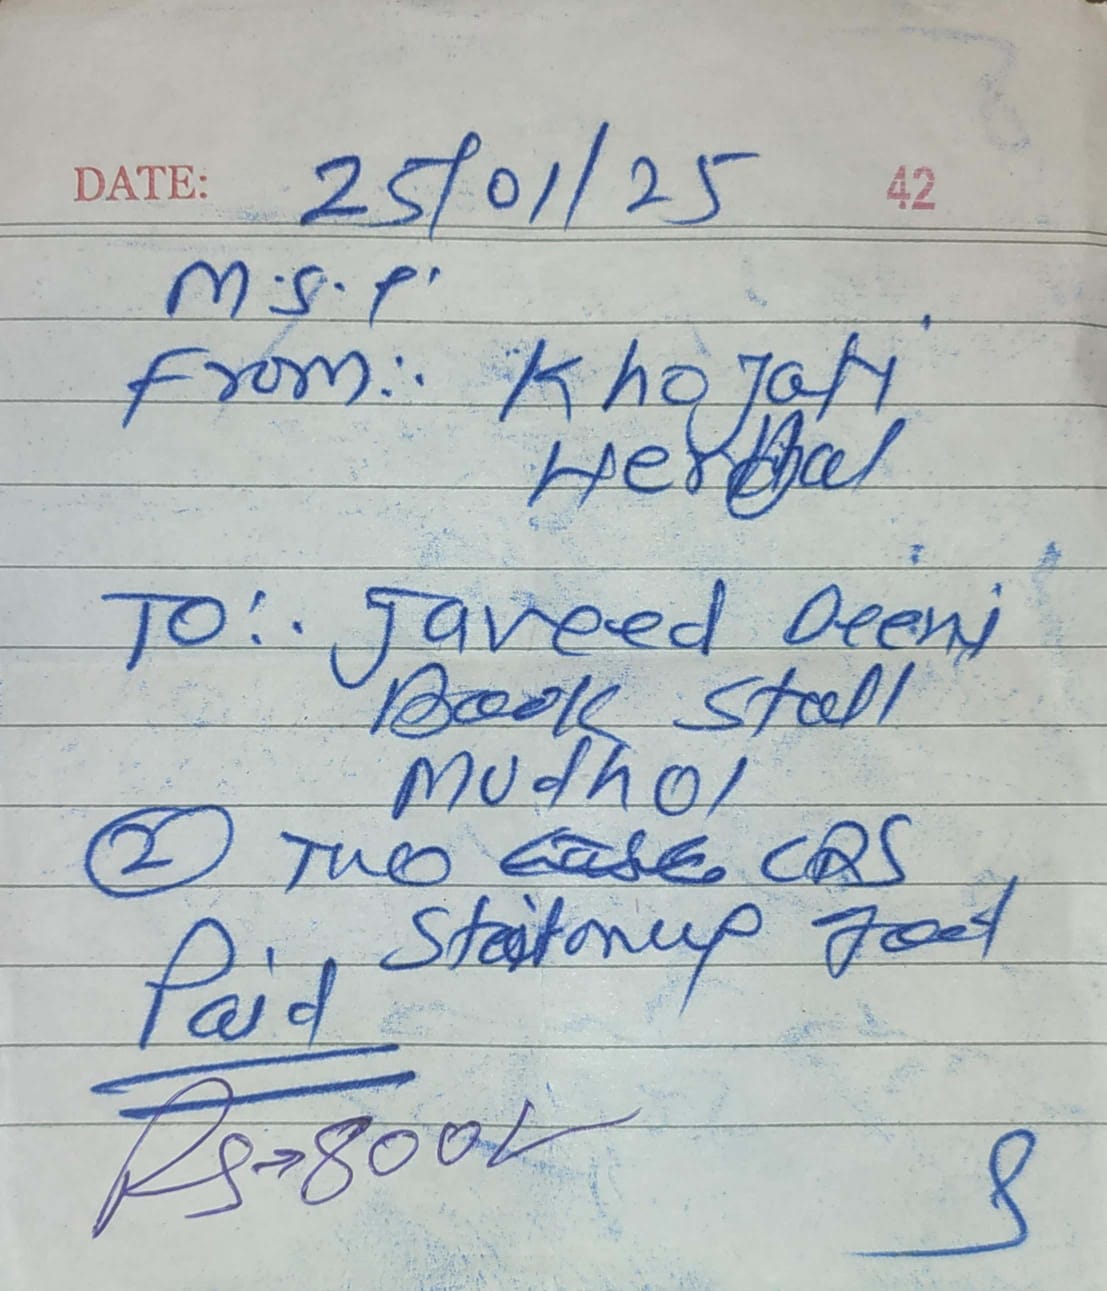 DATE: 25/01/25 42
M.S.P.
From:. Khojati
Herbal
To:. Javeed Deeni
Book Stall
Mudhol
② Two case CRS
Paid
Rs→800/-